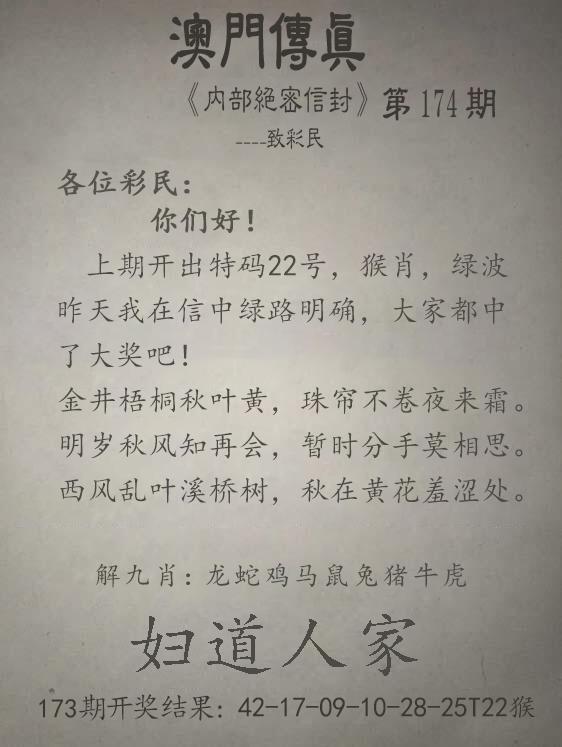 澳門傳眞
《内部絕密信封》第174期
----致彩民
各位彩民：
你们好！
上期开出特码22号，猴肖，绿波
昨天我在信中绿路明确，大家都中
了大奖吧！
金井梧桐秋叶黄，珠帘不卷夜来霜。
明岁秋风知再会，暂时分手莫相思。
西风乱叶溪桥树，秋在黄花羞涩处。
解九肖：龙蛇鸡马鼠兔猪牛虎
妇道人家
173期开奖结果：42-17-09-10-28-25T22猴